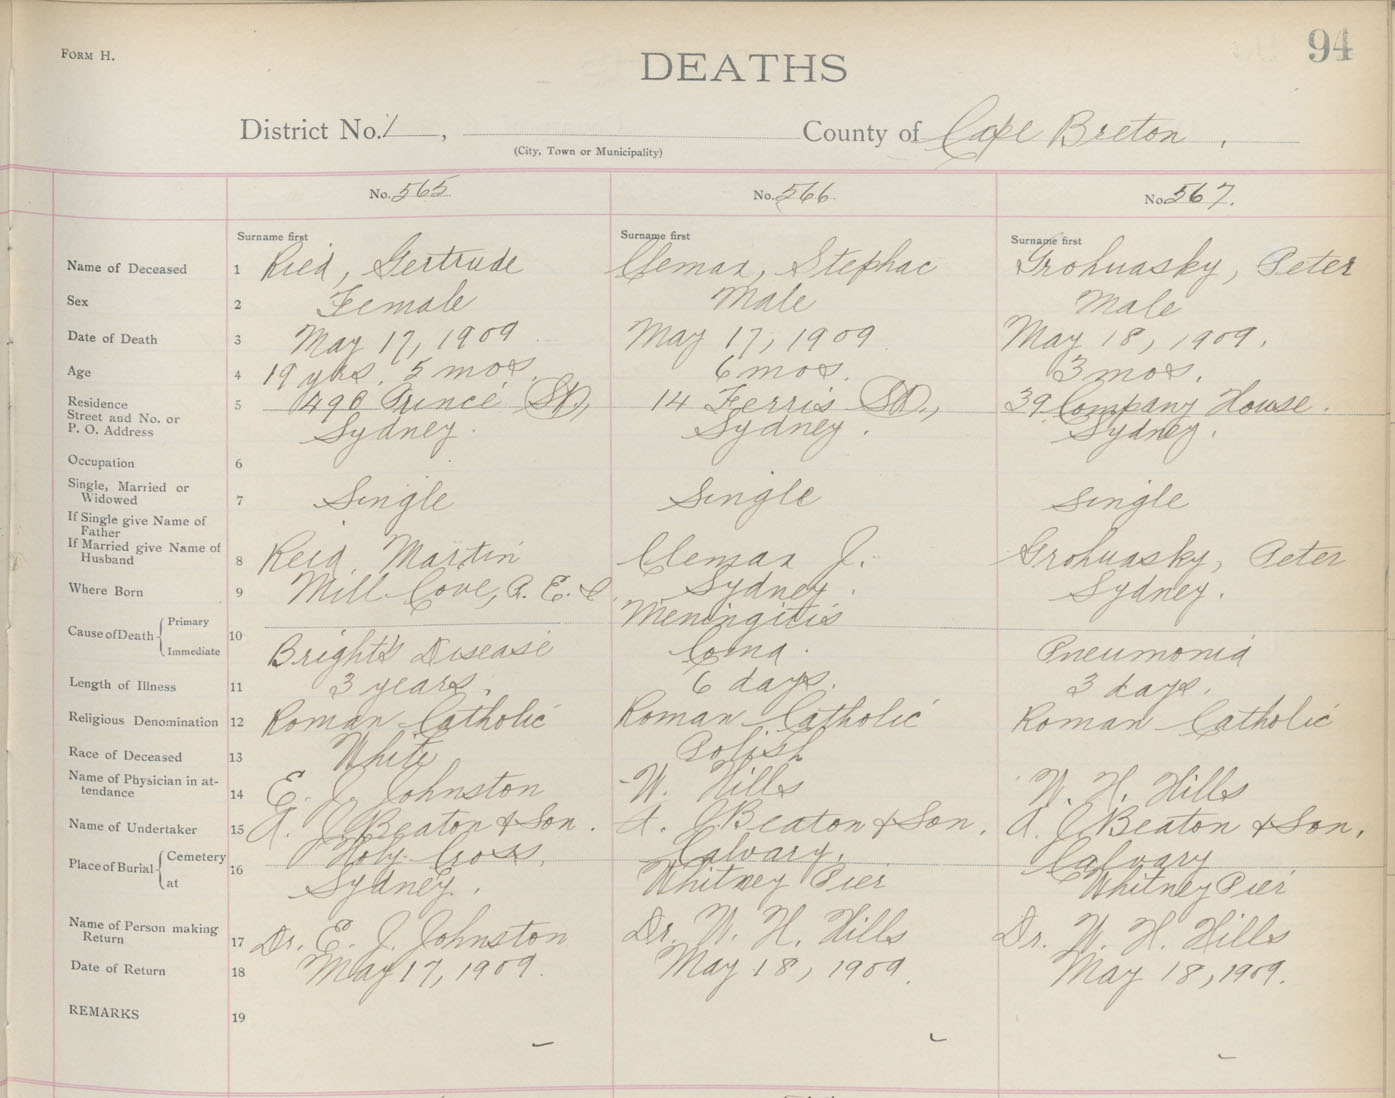 FORM H.
94
DEATHS
District No. 1, County of Cape Breton,
(City, Town or Municipality)
No. 565 No. 566 No. 567.
Surname first Surname first Surname first
Name of Deceased 1 Ried, Gertrude Clemax, Stephac Grohuasky, Peter
Sex 2 Female Male Male
Date of Death 3 May 17, 1909 May 17, 1909 May 18, 1909.
Age 4 19 yrs. 5 mos. 6 mos. 3 mos.
Residence 5 490 Prince St., 14 Ferris St., 39 Company House.
Street and No. or
P. O. Address Sydney. Sydney. Sydney.
Occupation 6
Single, Married or
Widowed 7 Single Single Single
If Single give Name of
Father
If Married give Name of
Husband 8 Reid, Martin Clemax J. Grohuasky, Peter
Where Born 9 Mill Cove, P. E. I. Sydney. Sydney.
Cause of Death Primary 10 Meningitis
Immediate Bright's Disease Coma. Pneumonia
Length of Illness 11 3 years. 6 days. 3 days.
Religious Denomination 12 Roman Catholic Roman Catholic Roman Catholic
Race of Deceased 13 White Polish
Name of Physician in at-
tendance 14 E. J. Johnston W. Hills W. H. Hills
Name of Undertaker 15 A. J. Beaton & Son. A. J. Beaton & Son. A. J. Beaton & Son.
Place of Burial Cemetery 16 Holy Cross, Calvary, Calvary
at Sydney. Whitney Pier Whitney Pier
Name of Person making
Return 17 Dr. E. J. Johnston Dr. W. H. Hills Dr. W. H. Hills
Date of Return 18 May 17, 1909. May 18, 1909. May 18, 1909.
REMARKS 19